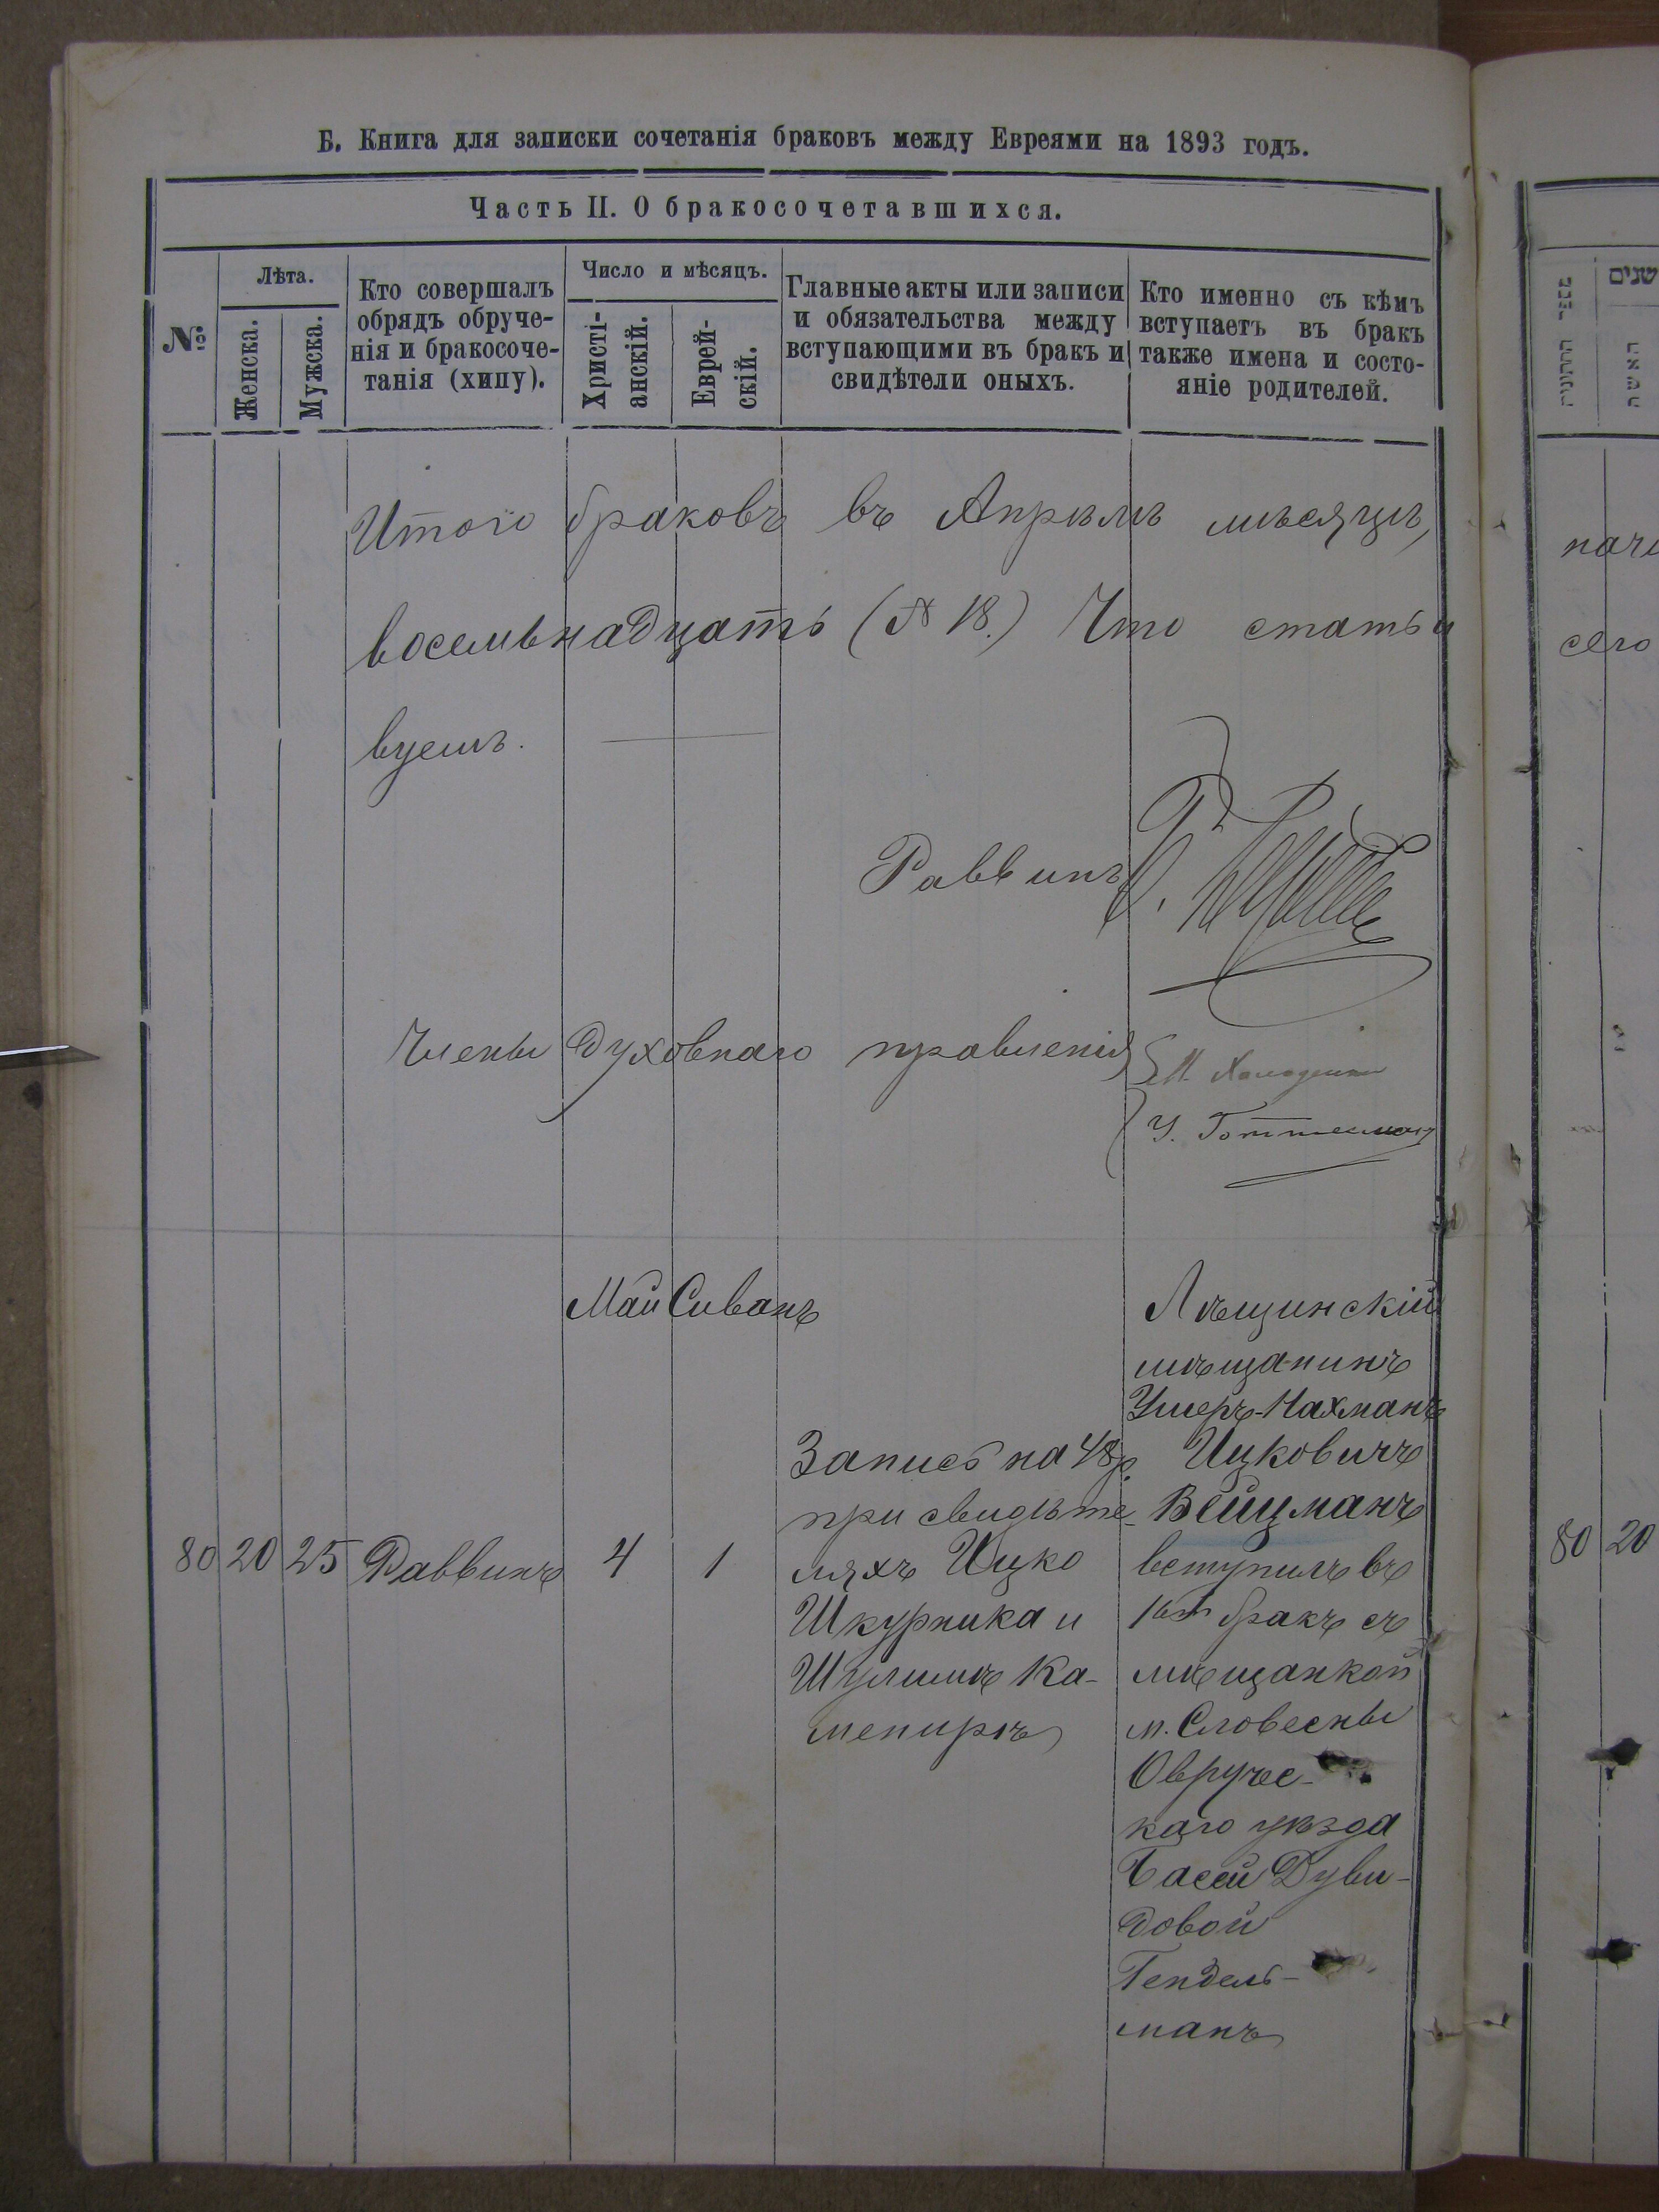 Б. Книга для записки сочетанія браковъ между Евреями на 1893 годъ.
Часть II. О бракосочетавшихся.
№
Лѣта.
Женска.
Мужска.
Кто совершалъ
обрядъ обруче-
нія и бракосоче-
танія (хипу).
Число и мѣсяцъ.
Христі-
анскій.
Еврей-
скій.
Главные акты или записи
и обязательства между
вступающими въ бракъ и
свидѣтели оныхъ.
Кто именно съ кѣмъ
вступаетъ въ бракъ
также имена и состо-
яніе родителей.
Итого браковъ въ Апрѣлѣ мѣсяцѣ,
восемьнадцать (№ 18.) Что статьи
вуемъ.
Раввинъ
Члены духовнаго правленія
У. Готтесманъ
Май Сиванъ
80 20 25 Раввинъ 4 1
Запись на 48 р.
при свидѣте-
ляхъ Ицко
Шкурника и
Шулимѣ Ка-
менирѣ
Лѣщинскій
мѣщанинъ
Ушеръ-Нахманъ
Ицковичъ
Вейцманъ
вступилъ въ
1ый бракъ съ
мѣщанкой
м. Словесны
Овручс-
каго уѣзда
Басей Дуви-
довой
Гендель-
манъ
שנים
האשה
80 20
наче
сего